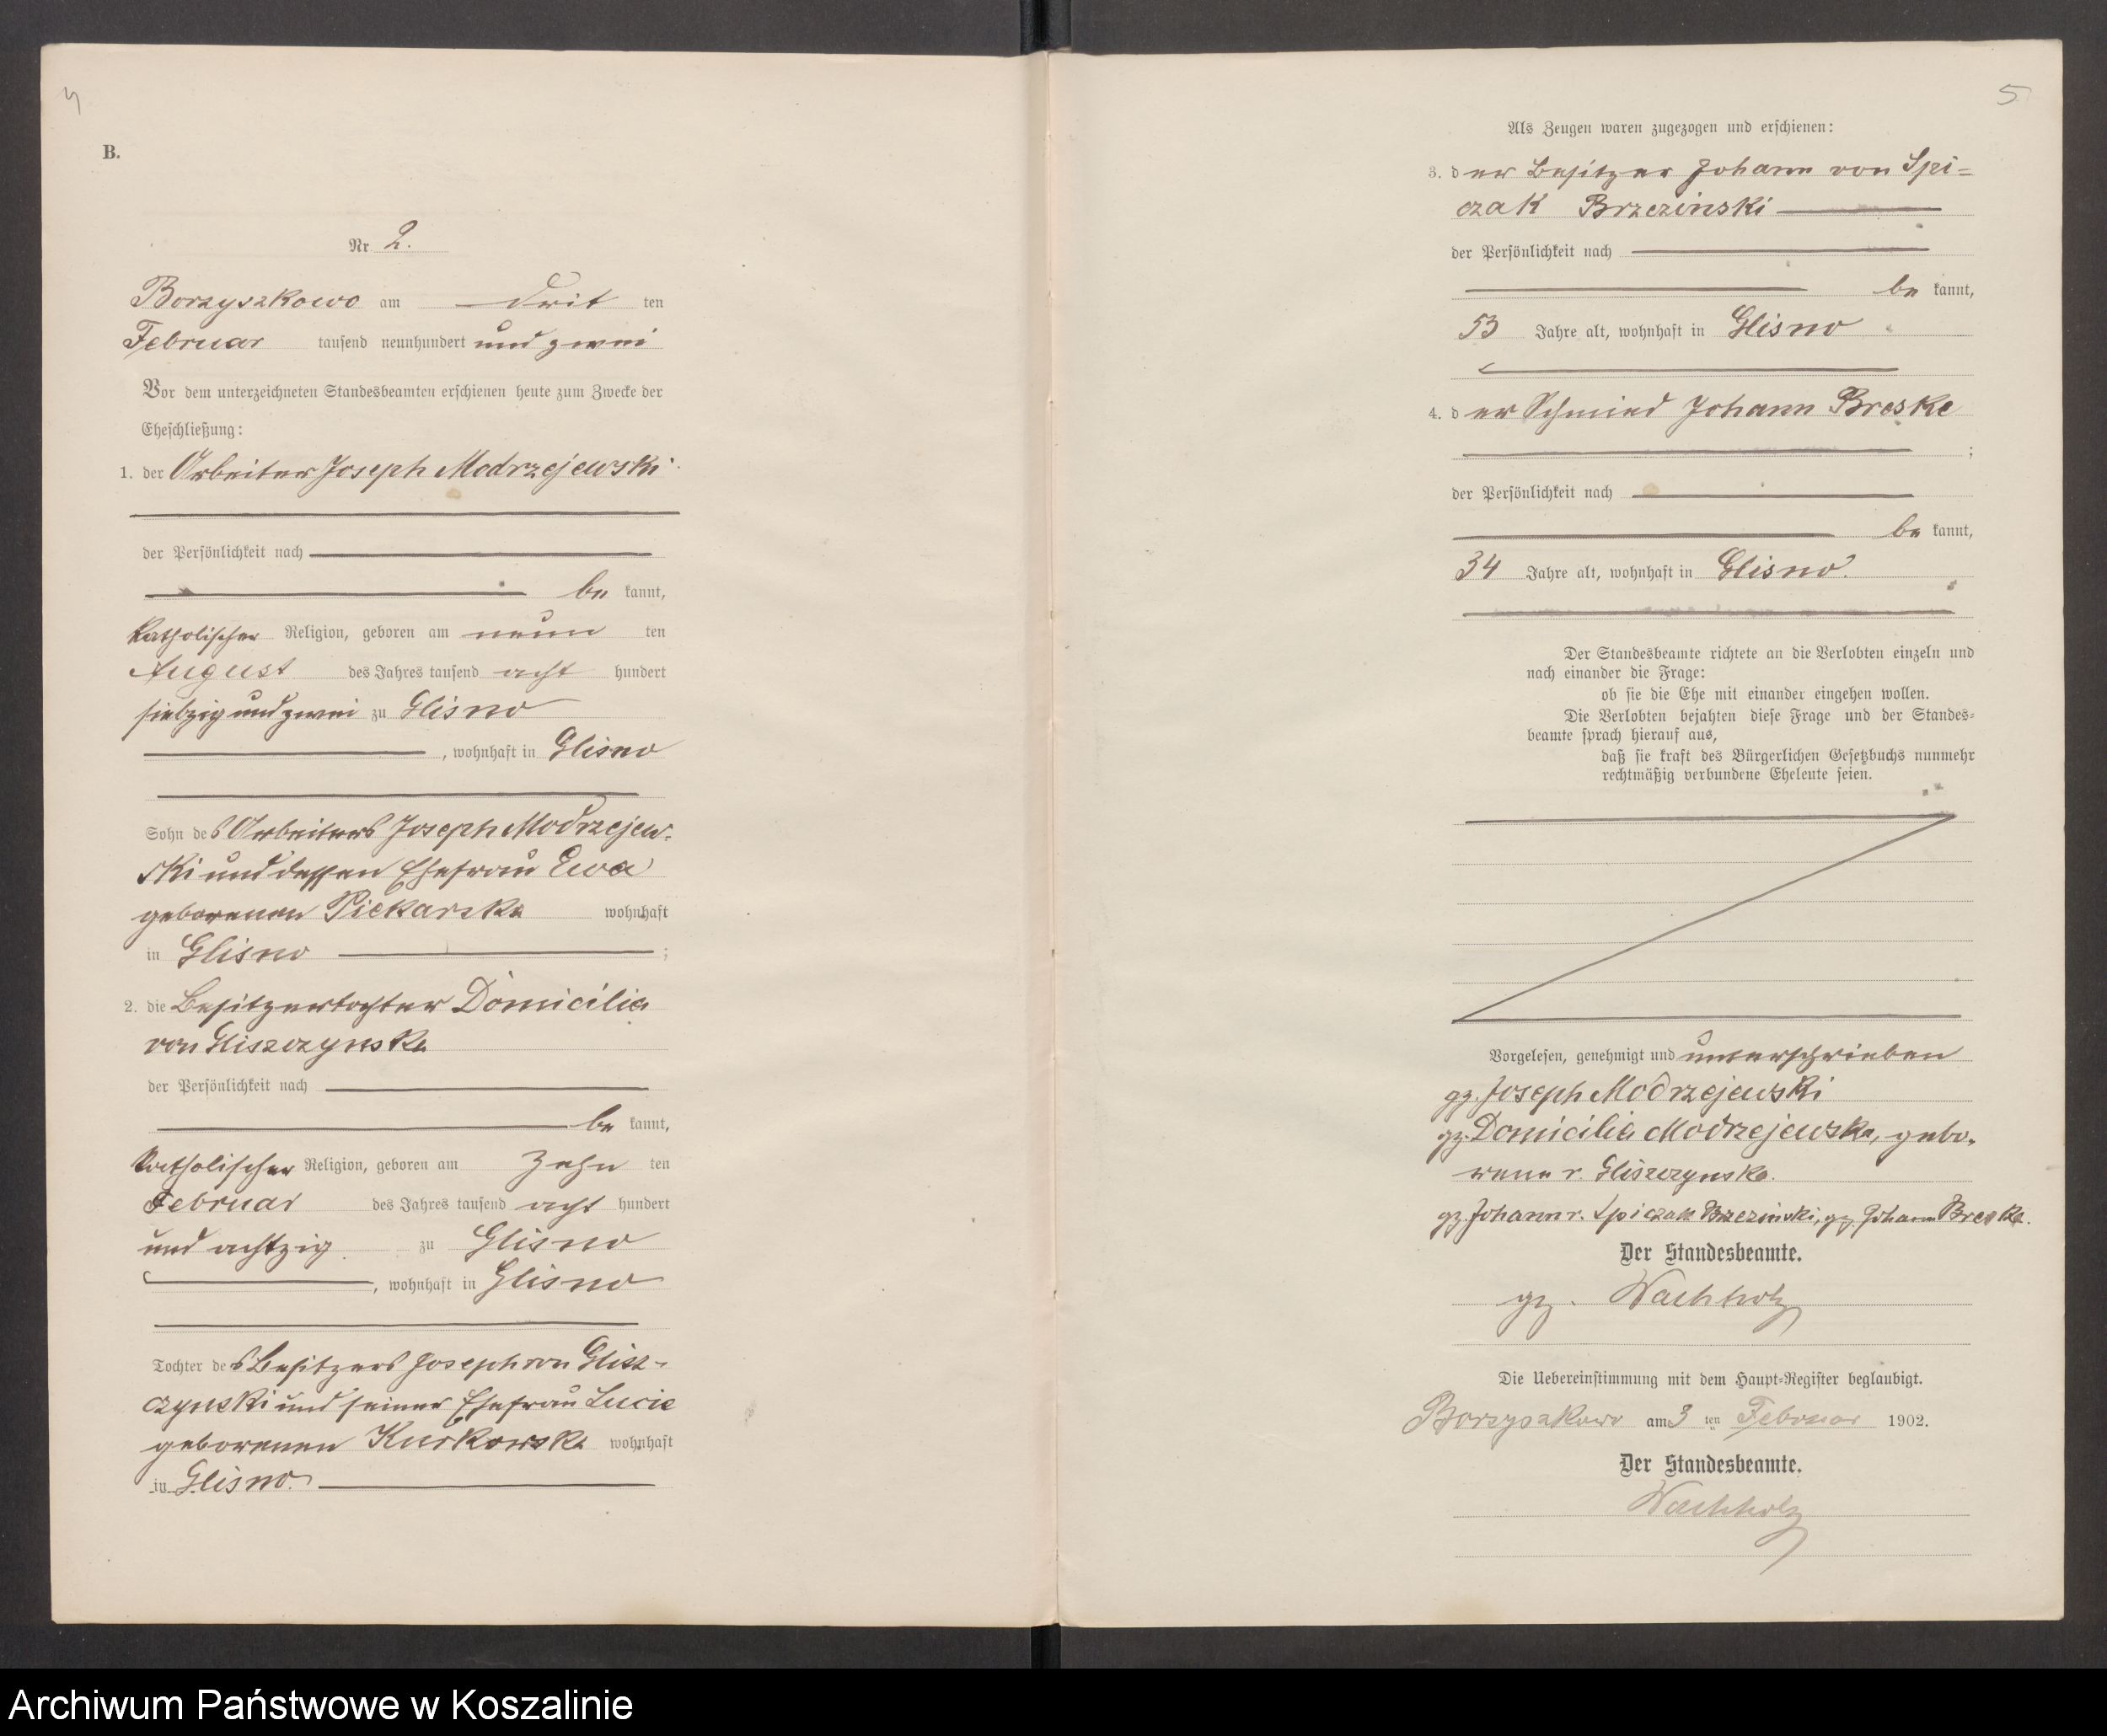 4
B.
Nr 2.
Borzyszkowo am drit ten
Februar tausend neunhundert und zwei
Vor dem unterzeichneten Standesbeamten erschienen heute zum Zwecke der
Eheschließung:
1. der Arbeiter Joseph Modrzejewski
der Persönlichkeit nach
be kannt,
katholischer Religion, geboren am neun ten
August des Jahres tausend acht hundert
siebzig und zwei zu Glisno
, wohnhaft in Glisno
Sohn des Arbeiters Joseph Modrzejew-
ski und dessen Ehefrau Ewa
geborenen Piekarska wohnhaft
in Glisno ;
2. die Besitzertochter Domicilia
von Gliszczynska
der Persönlichkeit nach
be kannt,
katholischer Religion, geboren am zehn ten
Februar des Jahres tausend acht hundert
und achtzig zu Glisno
, wohnhaft in Glisno
Tochter des Besitzers Joseph von Glisz-
czynski und seiner Ehefrau Lucie
geborenen Kurkowska wohnhaft
in Glisno.
5
Als Zeugen waren zugezogen und erschienen:
3. der Besitzer Johann von Spi=
czak Brzezinski
der Persönlichkeit nach
be kannt,
53 Jahre alt, wohnhaft in Glisno
4. der Schmied Johann Breske
;
der Persönlichkeit nach
be kannt,
34 Jahre alt, wohnhaft in Glisno.
Der Standesbeamte richtete an die Verlobten einzeln und
nach einander die Frage:
ob sie die Ehe mit einander eingehen wollen.
Die Verlobten bejahten diese Frage und der Standes=
beamte sprach hierauf aus,
daß sie kraft des Bürgerlichen Gesetzbuchs nunmehr
rechtmäßig verbundene Eheleute seien.
Vorgelesen, genehmigt und unterschrieben
gz. Joseph Modrzejewski
gz. Domicilia Modrzejewska, gebo-
rene v. Gliszczynska.
gz. Johann v. Spiczak Brzezinski, gz. Johann Breske.
Der Standesbeamte.
gz. Wachholz
Die Uebereinstimmung mit dem Haupt=Register beglaubigt.
Borzyszkowo am 3 ten Februar 1902.
Der Standesbeamte.
Wachholz
Archiwum Państwowe w Koszalinie